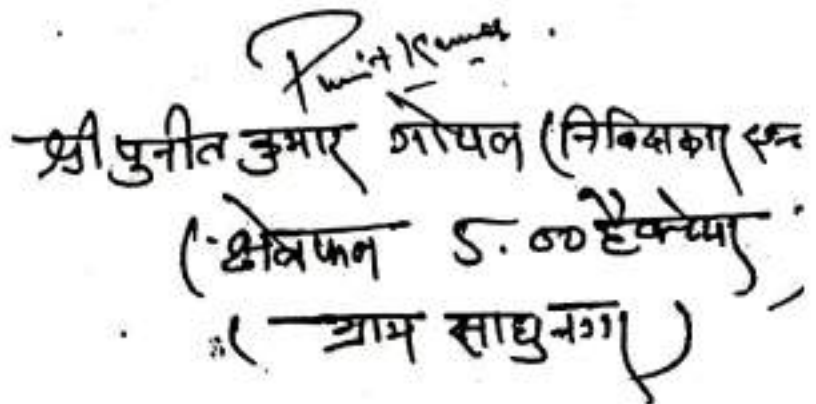 Punit Kumar
श्री पुनीत कुमार गोयल (निविदाकार
(क्षेत्रफल 5.00 हैक्टेयर)
(ग्राम साधुनगर)